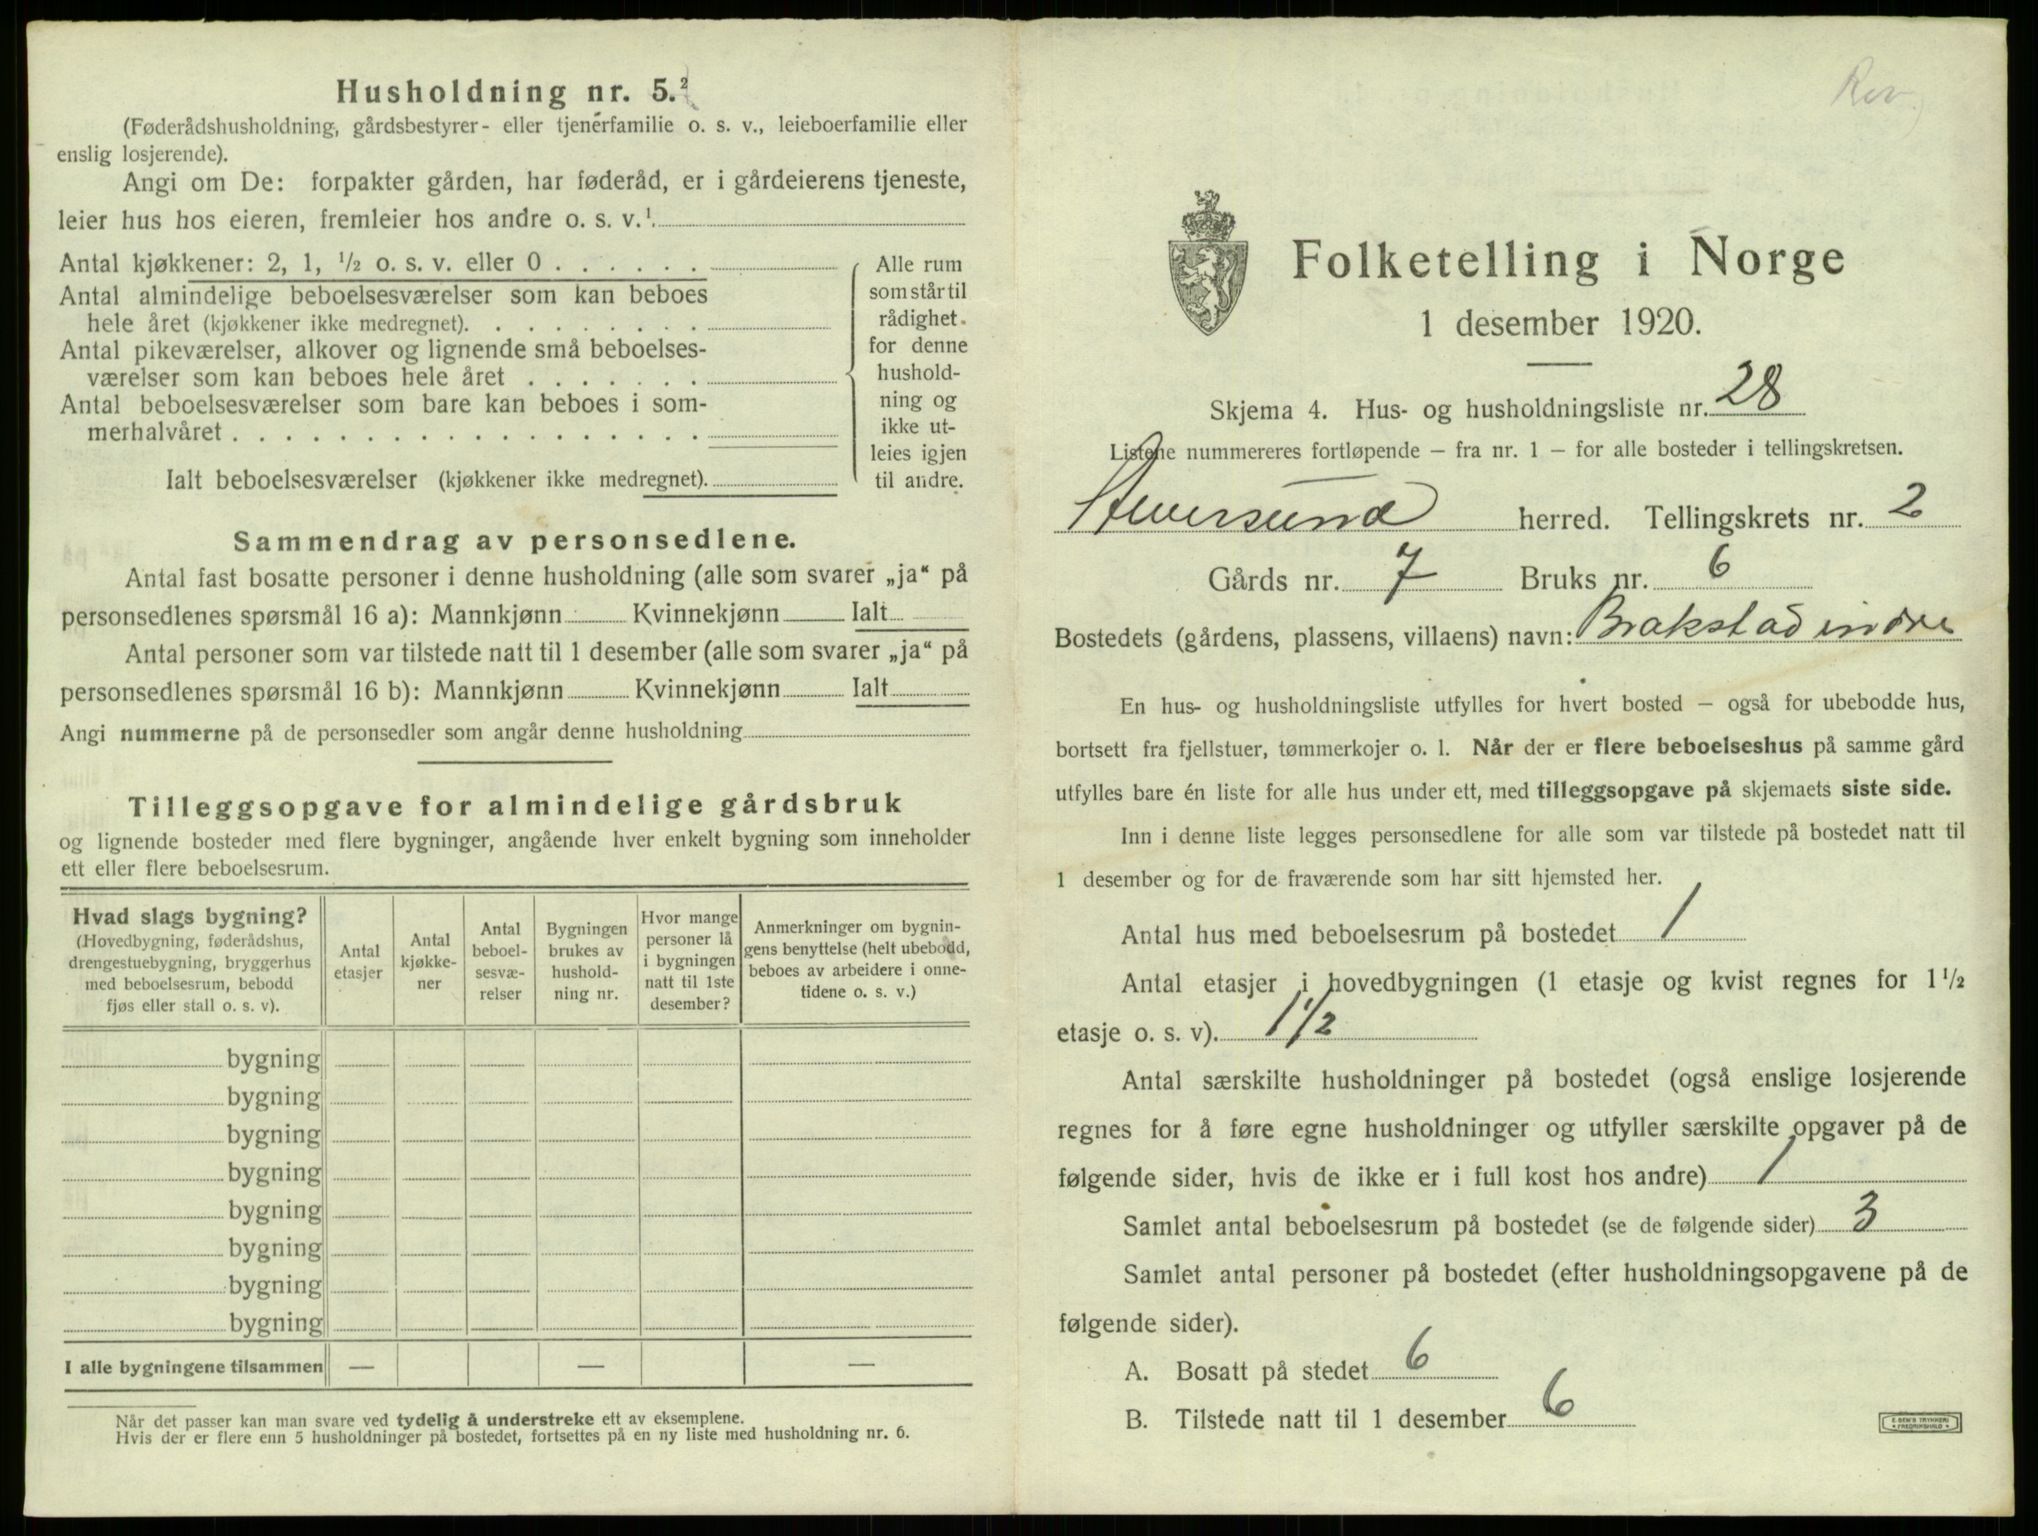 Husholdning nr. 5.²
(Føderådshusholdning, gårdsbestyrer- eller tjenerfamilie o. s. v., leieboerfamilie eller
enslig losjerende).
Angi om De: forpakter gården, har føderåd, er i gårdeierens tjeneste,
leier hus hos eieren, fremleier hos andre o. s. v.¹
Antal kjøkkener: 2, 1, ½ o. s. v. eller 0 . . . . . .
Antal almindelige beboelsesværelser som kan beboes
hele året (kjøkkener ikke medregnet). . . . . . . . .
Antal pikeværelser, alkover og lignende små beboelses-
værelser som kan beboes hele året . . . . . . .
Antal beboelsesværelser som bare kan beboes i som-
merhalvåret . . . . . . . . . . . . . . . . . .
Ialt beboelsesværelser (kjøkkener ikke medregnet).
Alle rum
som står til
rådighet
for denne
hushold-
ning og
ikke ut-
leies igjen
til andre.
Sammendrag av personsedlene.
Antal fast bosatte personer i denne husholdning (alle som svarer „ja“ på
personsedlenes spørsmål 16 a): Mannkjønn Kvinnekjønn Ialt
Antal personer som var tilstede natt til 1 desember (alle som svarer „ja“ på
personsedlenes spørsmål 16 b): Mannkjønn Kvinnekjønn Ialt
Angi nummerne på de personsedler som angår denne husholdning
Tilleggsopgave for almindelige gårdsbruk
og lignende bosteder med flere bygninger, angående hver enkelt bygning som inneholder
ett eller flere beboelsesrum.
Hvad slags bygning?
(Hovedbygning, føderådshus,
drengestuebygning, bryggerhus
med beboelsesrum, bebodd
fjøs eller stall o. s. v).
Antal
etasjer
Antal
kjøkke-
ner
Antal
beboel-
sesvæ-
relser
Bygningen
brukes av
hushold-
ning nr.
Hvor mange
personer lå
i bygningen
natt til 1ste
desember?
Anmerkninger om bygnin-
gens benyttelse (helt ubebodd,
beboes av arbeidere i onne-
tidene o. s. v.)
bygning
bygning
bygning
bygning
bygning
bygning
bygning
bygning
I alle bygningene tilsammen — — —
Når det passer kan man svare ved tydelig å understreke ett av eksemplene.
Hvis der er flere enn 5 husholdninger på bostedet, fortsettes på en ny liste med husholdning nr. 6.
Rev.
Folketelling i Norge
1 desember 1920.
Skjema 4. Hus- og husholdningsliste nr. 28
Listene nummereres fortløpende – fra nr. 1 – for alle bosteder i tellingskretsen.
herred. Tellingskrets nr. 2
Gårds nr. 7 Bruks nr. 6
Bostedets (gårdens, plassens, villaens) navn: Brakstad indre
En hus- og husholdningsliste utfylles for hvert bosted – også for ubebodde hus,
bortsett fra fjellstuer, tømmerkojer o. l. Når der er flere beboelseshus på samme gård
utfylles bare én liste for alle hus under ett, med tilleggsopgave på skjemaets siste side.
Inn i denne liste legges personsedlene for alle som var tilstede på bostedet natt til
1 desember og for de fraværende som har sitt hjemsted her.
Antal hus med beboelsesrum på bostedet 1
Antal etasjer i hovedbygningen (1 etasje og kvist regnes for 1½
etasje o. s. v). 1½
Antal særskilte husholdninger på bostedet (også enslige losjerende
regnes for å føre egne husholdninger og utfyller særskilte opgaver på de
følgende sider, hvis de ikke er i full kost hos andre) 1
Samlet antal beboelsesrum på bostedet (se de følgende sider) 3
Samlet antal personer på bostedet (efter husholdningsopgavene på de
følgende sider).
A. Bosatt på stedet 6
B. Tilstede natt til 1 desember 6